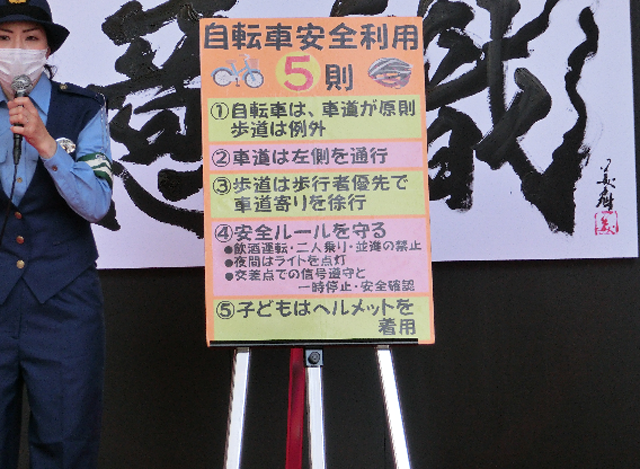 自転車安全利用
5則
①自転車は、車道が原則
歩道は例外
②車道は左側を通行
③歩道は歩行者優先で
車道寄りを徐行
④安全ルールを守る
●飲酒運転・二人乗り・並進の禁止
●夜間はライトを点灯
●交差点での信号遵守と
一時停止・安全確認
⑤子どもはヘルメットを
着用